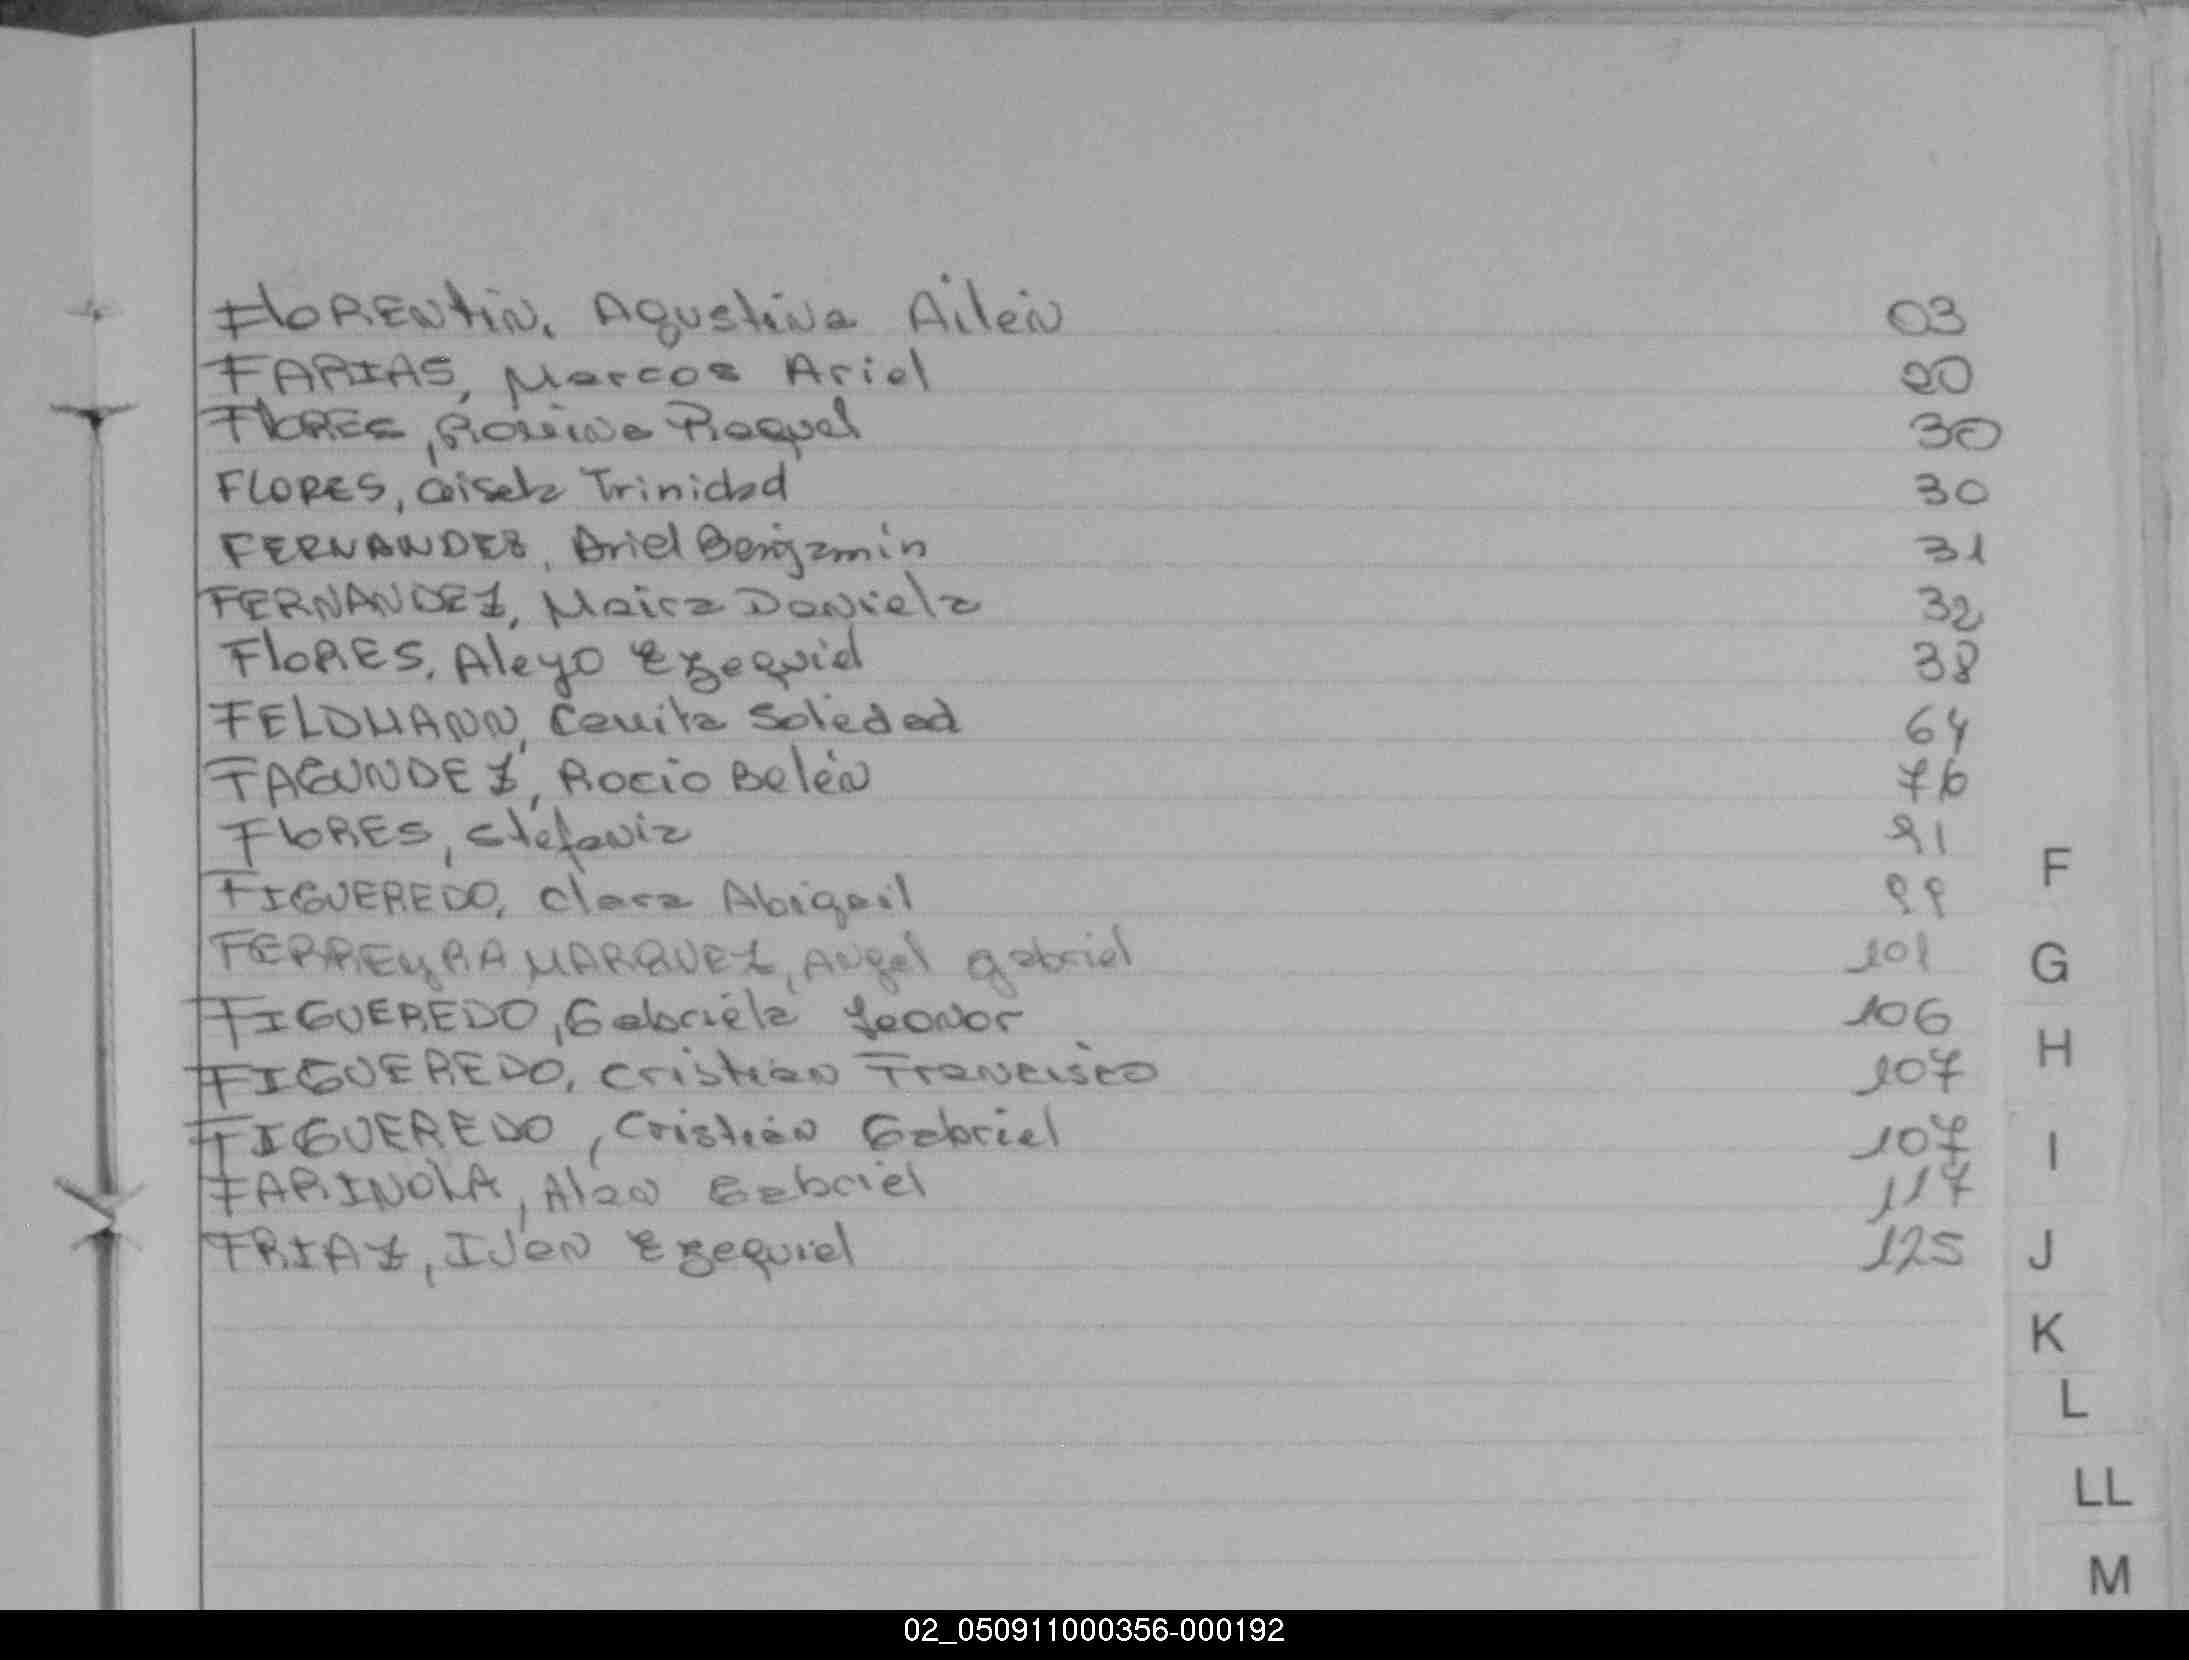 FlORENtiN, Agustina Ailén 03
FARIAS, Marcos Ariel 20
FlORES, Romina Raquel 30
FLORES, Gisela Trinidad 30
FERNANDEZ, Ariel Benjamín 31
FERNANDEZ, Maira Daniela 32
FlORES, Aleyo Ezequiel 38
FELDMANN, Camila Soledad 64
FAGUNDEZ, Rocio Belén 76
FlORES, Stefania 91
FIGUEREDO, Clara Abigail 99
FERREyRA MARQUEZ, Angel gabriel 101
FIGUEREDO, Gabriela Leonor 106
FIGUEREDO, Cristian Francisco 107
FIGUEREDO, Cristián Gabriel 107
FARINOLA, Alan Gabriel 117
FRIAZ, IVan Ezequiel 125
F
G
H
I
J
K
L
LL
M
02_050911000356-000192